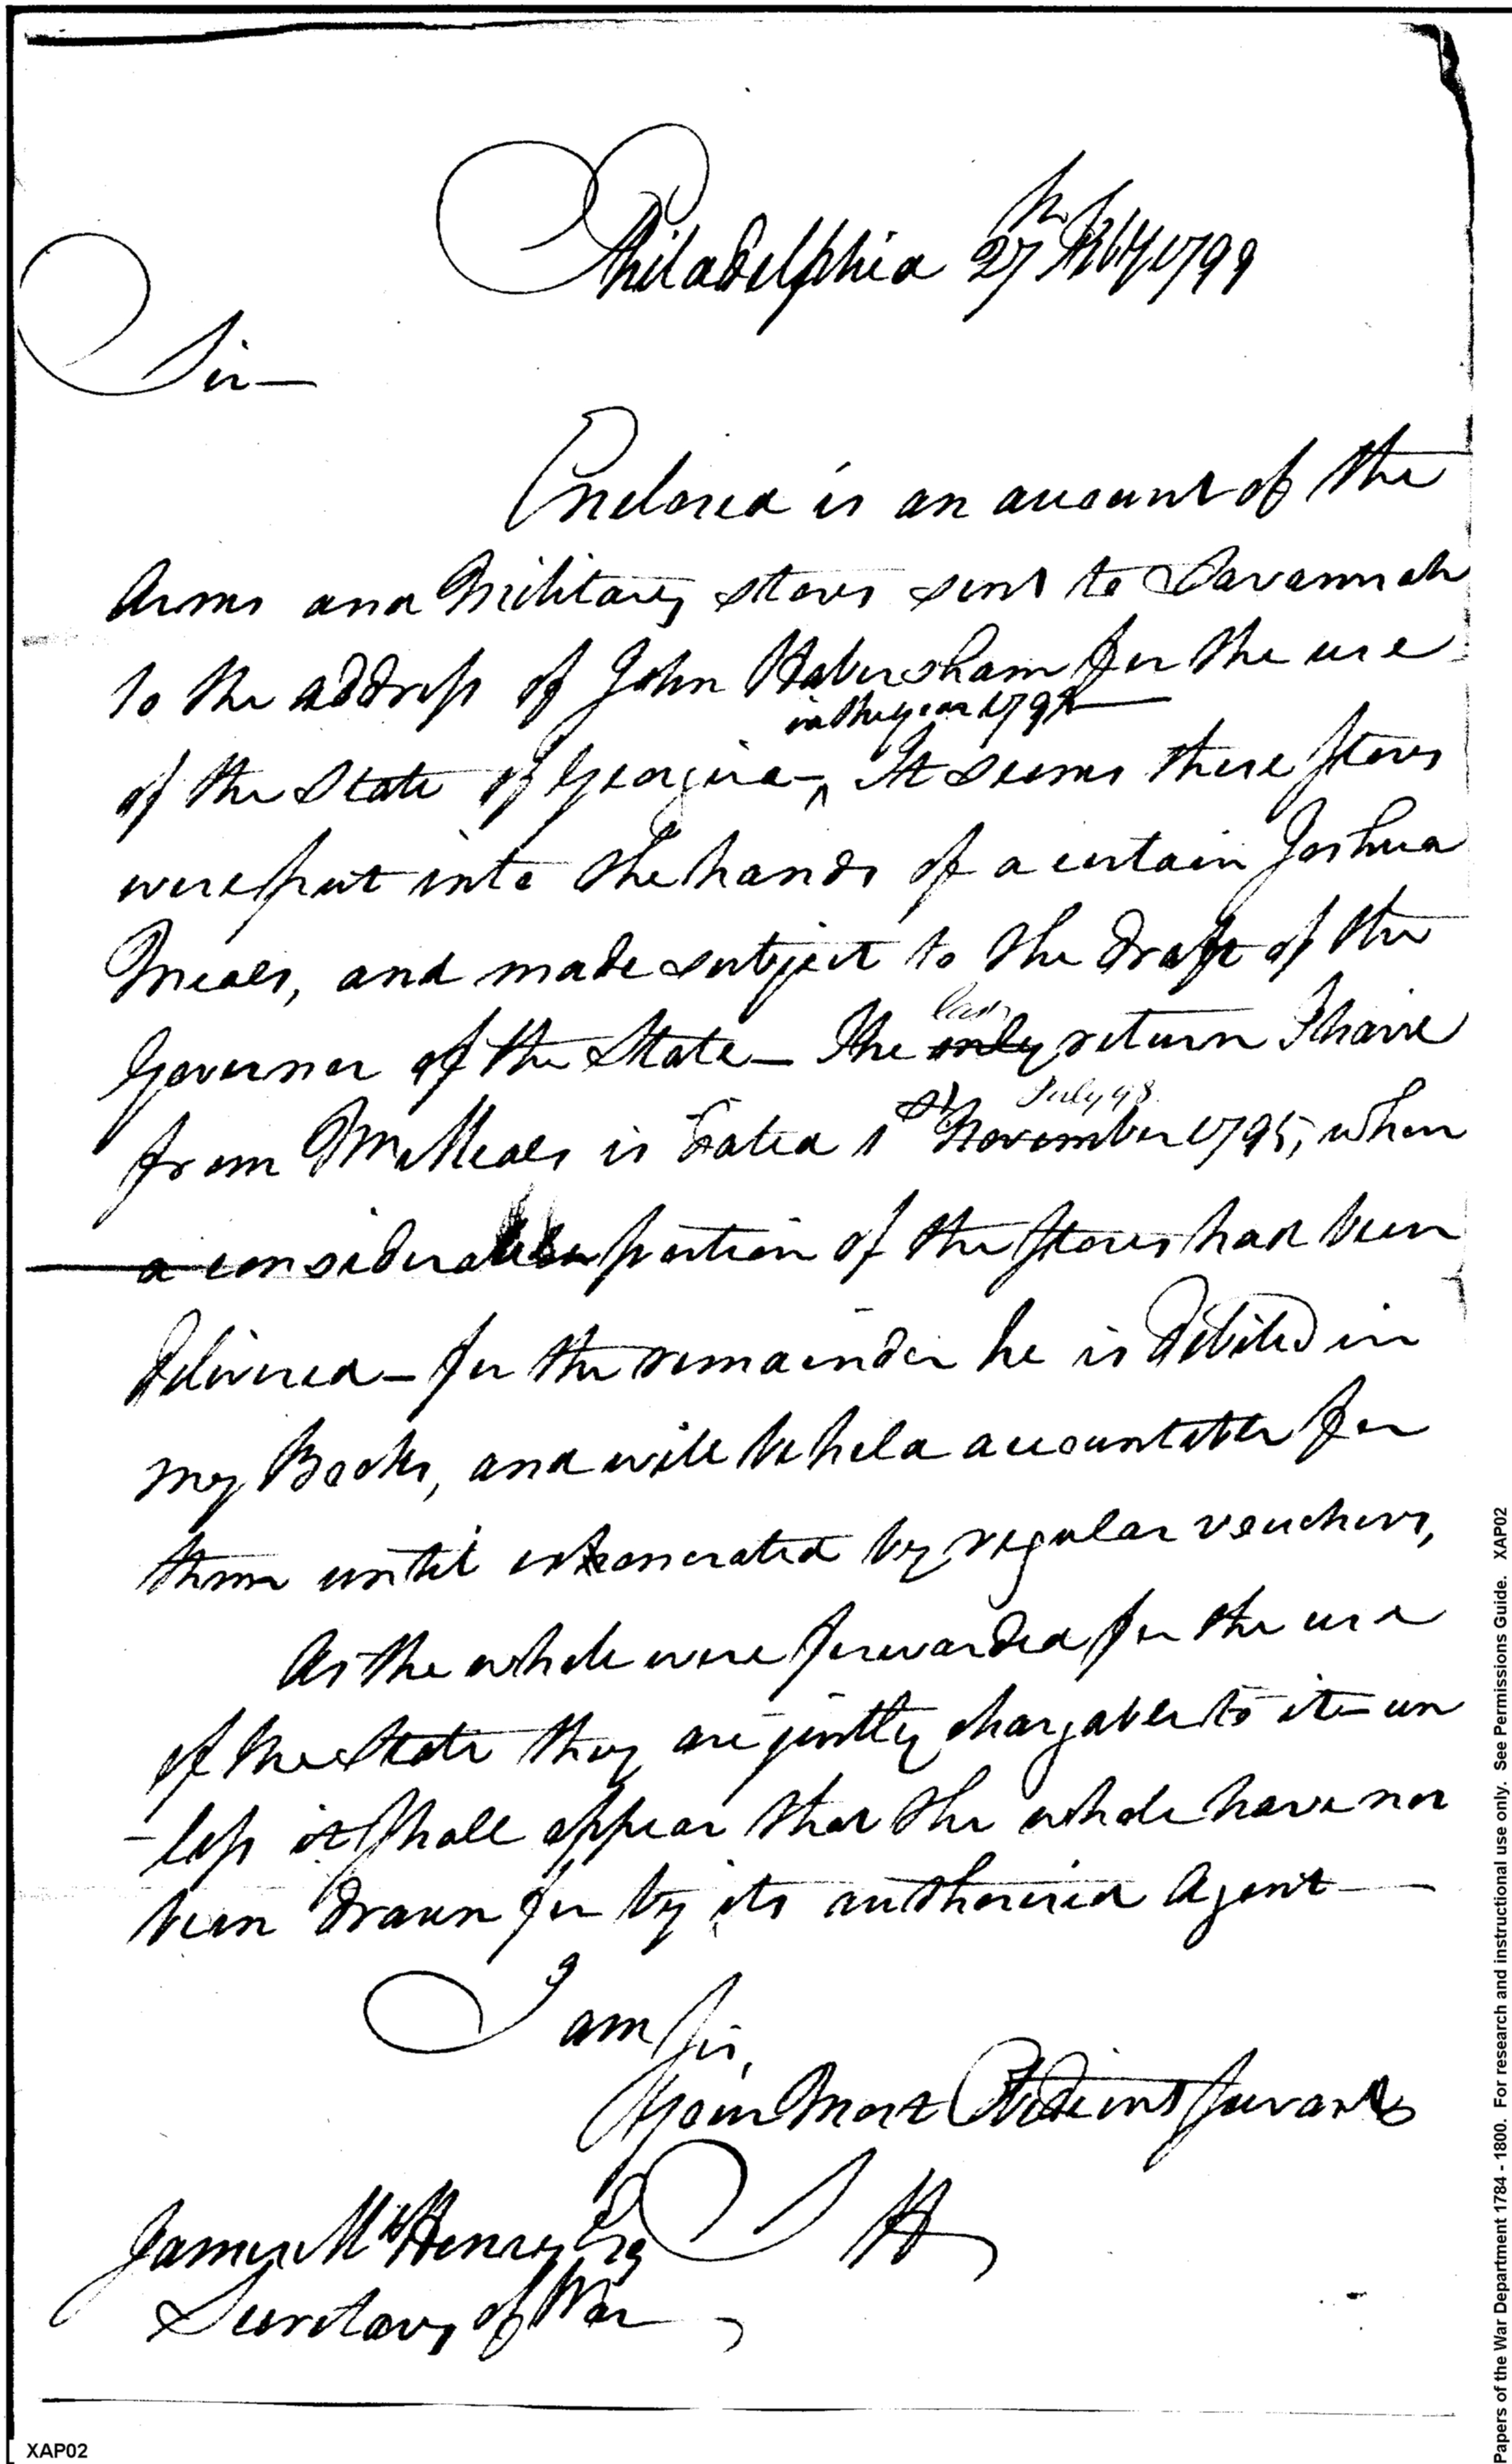 Philadelphia 27th Feby 1799
Sir—
Enclosed is an account of the
Arms and Military stores sent to Savannah
to the address of John Habersham for the use
in the year 1792
of the State of Georgia—^ It seems these stores
were put into the hands of a certain Joshua
Meals, and made subject to the draft of the
last
Governor of the State— The only return I have
July 98.
from Mr Meals is dated 1st November 1795, when
a considerable portion of the stores had been
delivered— for the remainder he is debited in
my Books, and will be held accountable for
them until exonerated by regular vouchers,
As the whole were forwarded for the use
of the State they are justly chargable to it— un
-less it shall appear that the whole have not
been drawn for by its authorised Agent—
I am Sir,
Your Most Obedient Servant
S H
James McHenry Esq
Secretary of War
XAP02
Papers of the War Department 1784 - 1800. For research and instructional use only. See Permissions Guide. XAP02